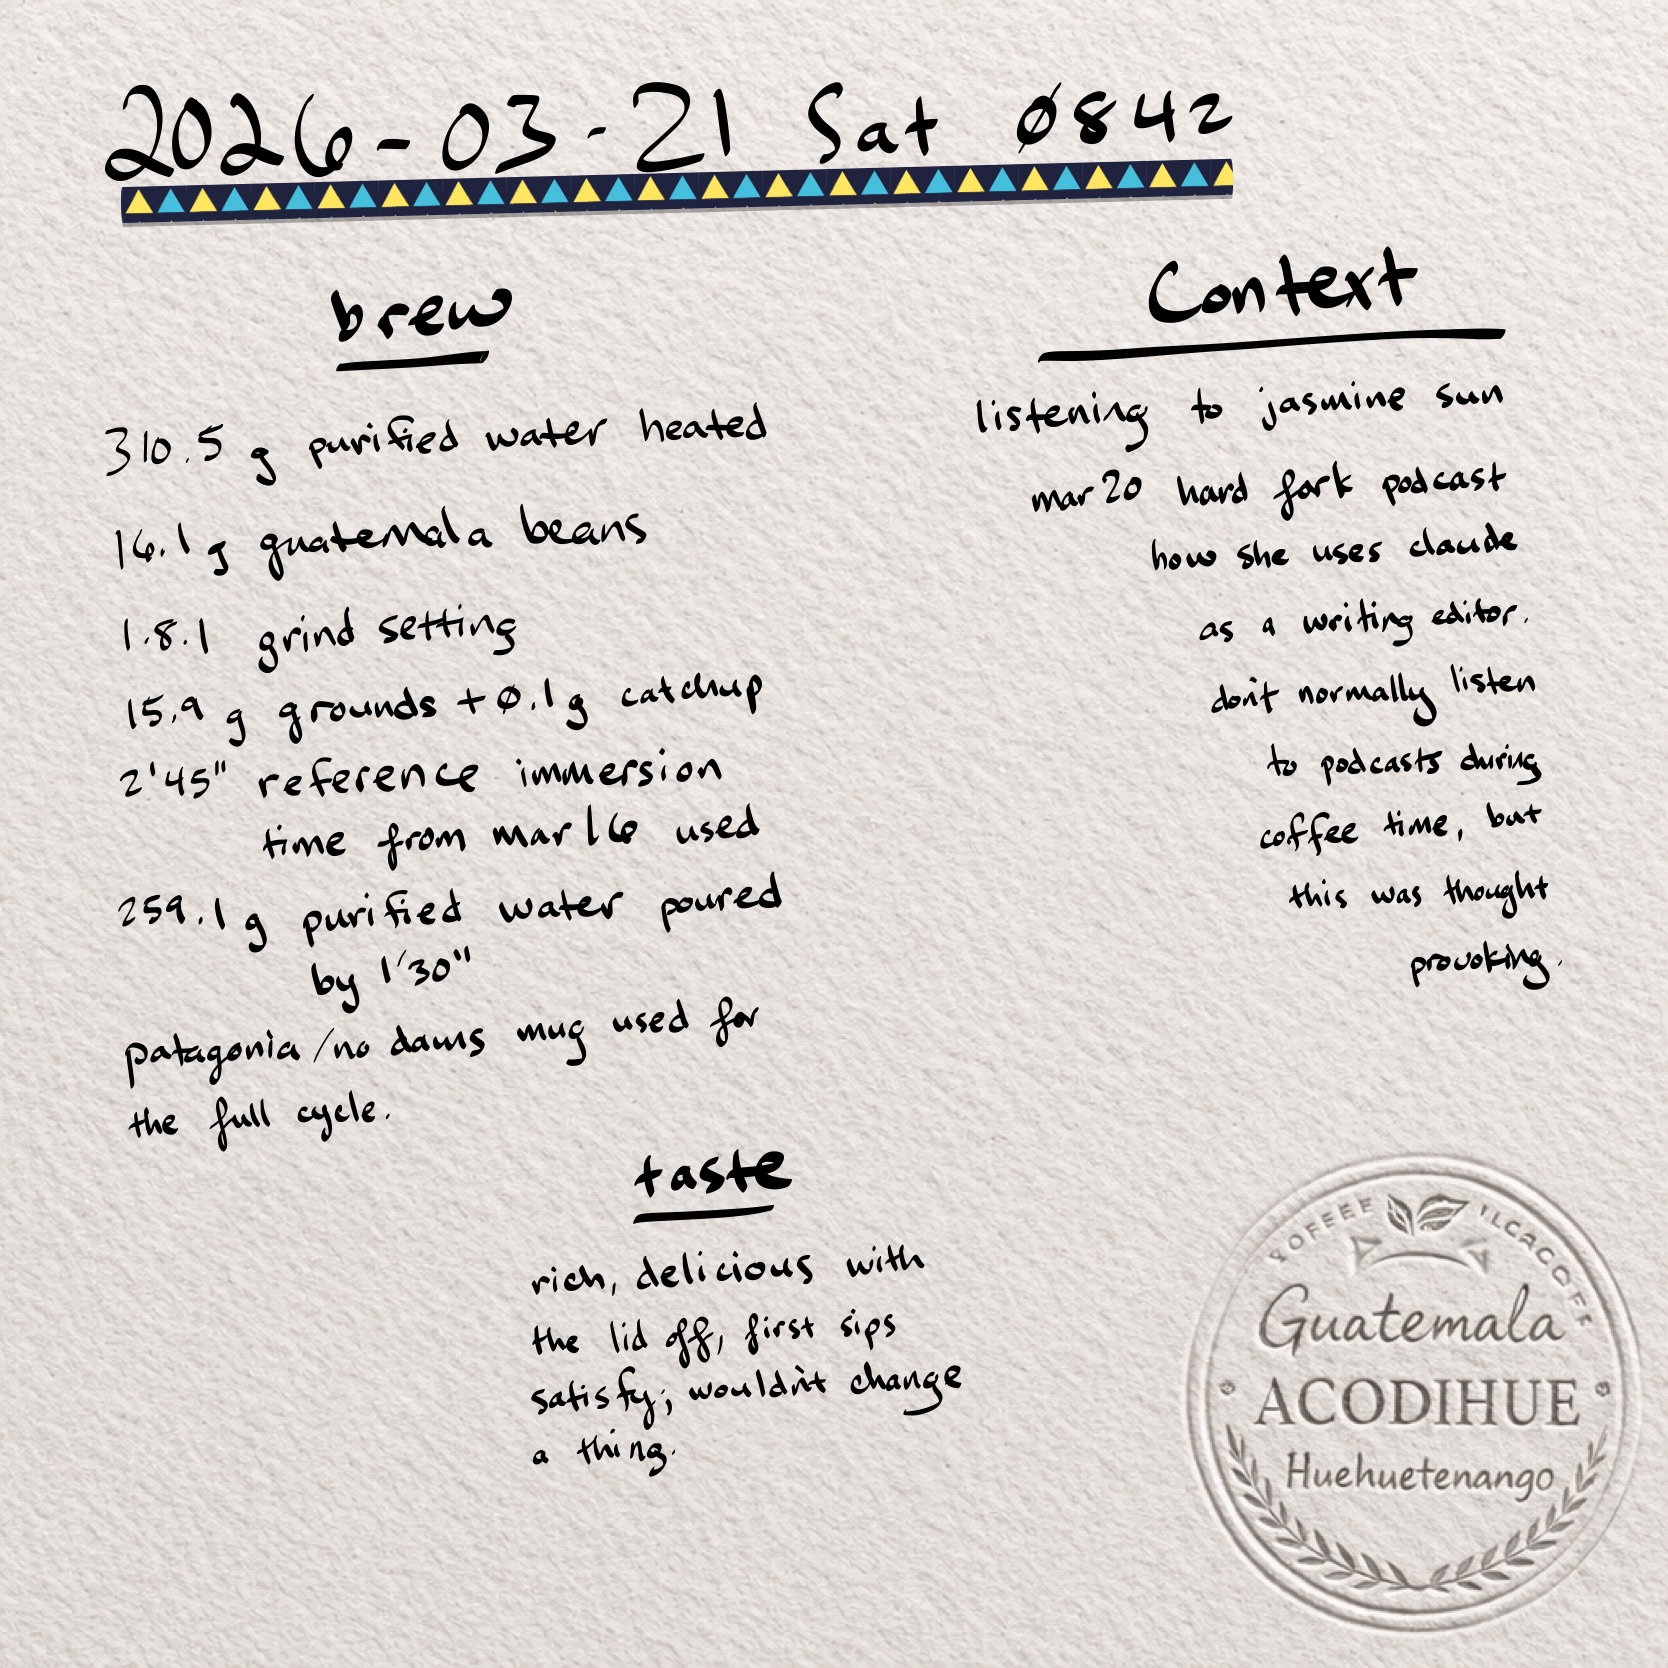 2026-03-21 Sat Ø842
brew
310.5 g purified water heated
16.1 g guatemala beans
1.8.1 grind setting
15.9 g grounds + Ø.1 g catchup
2'45" reference immersion
time from mar 16 used
259.1 g purified water poured
by 1'30"
patagonia/no dams mug used for
the full cycle.
Context
listening to jasmine sun
mar 20 hard fork podcast
how she uses claude
as a writing editor.
don't normally listen
to podcasts during
coffee time, but
this was thought
provoking.
taste
rich, delicious with
the lid off, first sips
satisfy; wouldn't change
a thing.
Guatemala
ACODIHUE
Huehuetenango